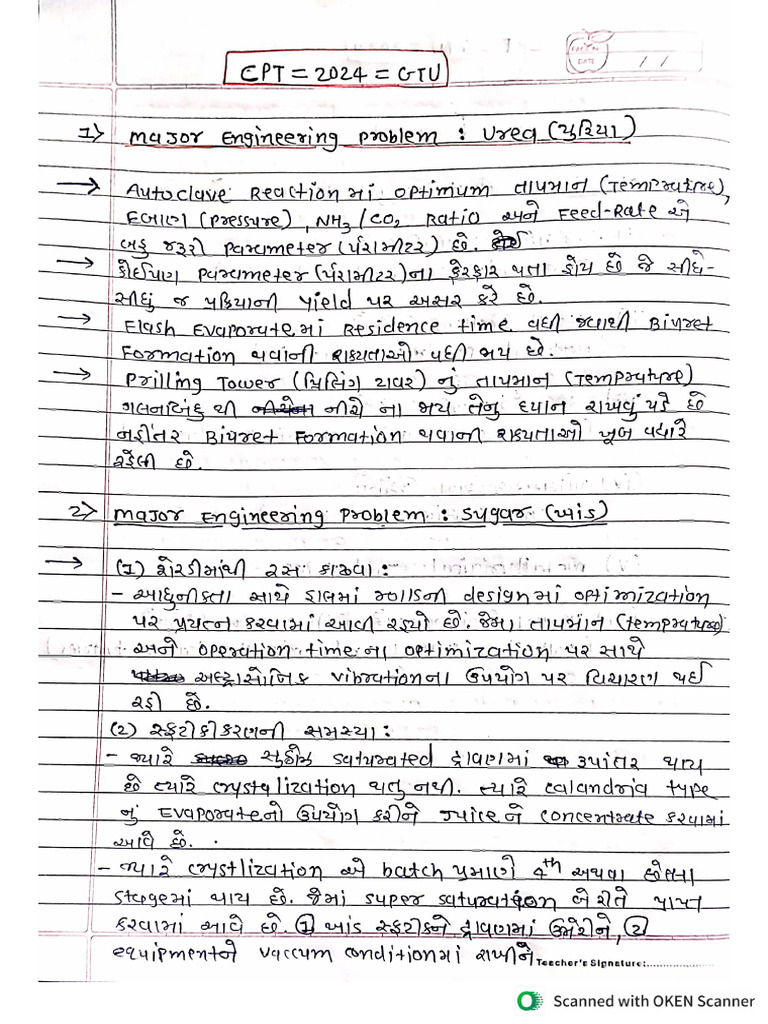 PAGE NO.
DATE / /
CPT = 2024 = GTU
1) Major Engineering Problem : Urea (યુરિયા)
→ Autoclave Reaction માં optimum તાપમાન (Temprature),
દબાણ (Pressure), NH3 / CO2 Ratio અને Feed-Rate એ
બહુ જરૂરી Parameter (પેરામીટર) છે.
→ કોઈપણ Parameter (પેરામીટર) ના ફેરફાર થતા હોય છે જે સીધે-
સીધું જ પ્રક્રિયાની Yield પર અસર કરે છે.
→ Flash Evaporate માં Residence time વધી જવાથી Biuret
Formation થવાની શક્યતાઓ વધી જાય છે.
→ Prilling Tower (પ્રિલિંગ ટાવર) નું તાપમાન (Temprature)
ગલનબિંદુ થી નીચે ના જાય તેનું ધ્યાન રાખવું પડે છે
નહીંતર Biuret Formation થવાની શક્યતાઓ ખૂબ વધારે
રહેલી છે.
2) Major Engineering Problem : Sugar (ખાંડ)
→ (1) શેરડીમાંથી રસ કાઢવા :
- આધુનીકતા સાથે હાલમાં rollsની design માં optimization
પર પ્રયત્ન કરવામાં આવી રહયો છે. જેમાં તાપમાન (temprature)
અને operation time ના optimization પર સાથે
અલ્ટ્રાસોનિક vibration ના ઉપયોગ પર વિચારણ થઈ
રહી છે.
(2) સ્ફટીકીકરણની સમસ્યા :
- જ્યારે સુક્રોઝ saturated દ્રાવણમાં રૂપાંતર થાય
છે ત્યારે crystalization થતુ નથી. ત્યારે calandria type
નું Evaporateનો ઉપયોગ કરીને Juice ને concentrate કરવામાં
આવે છે.
- જ્યારે crystlization એ batch પ્રમાણે 4th અથવા છેલ્લા
stage માં થાય છે. જેમાં super saturation બે રીતે પ્રાપ્ત
કરવામાં આવે છે. (1) ખાંડ સ્ફટીકને દ્રાવણમાં ઉમેરીને, (2)
equipment ને vaccum condition માં રાખીને
Teacher's Signature:
Scanned with OKEN Scanner